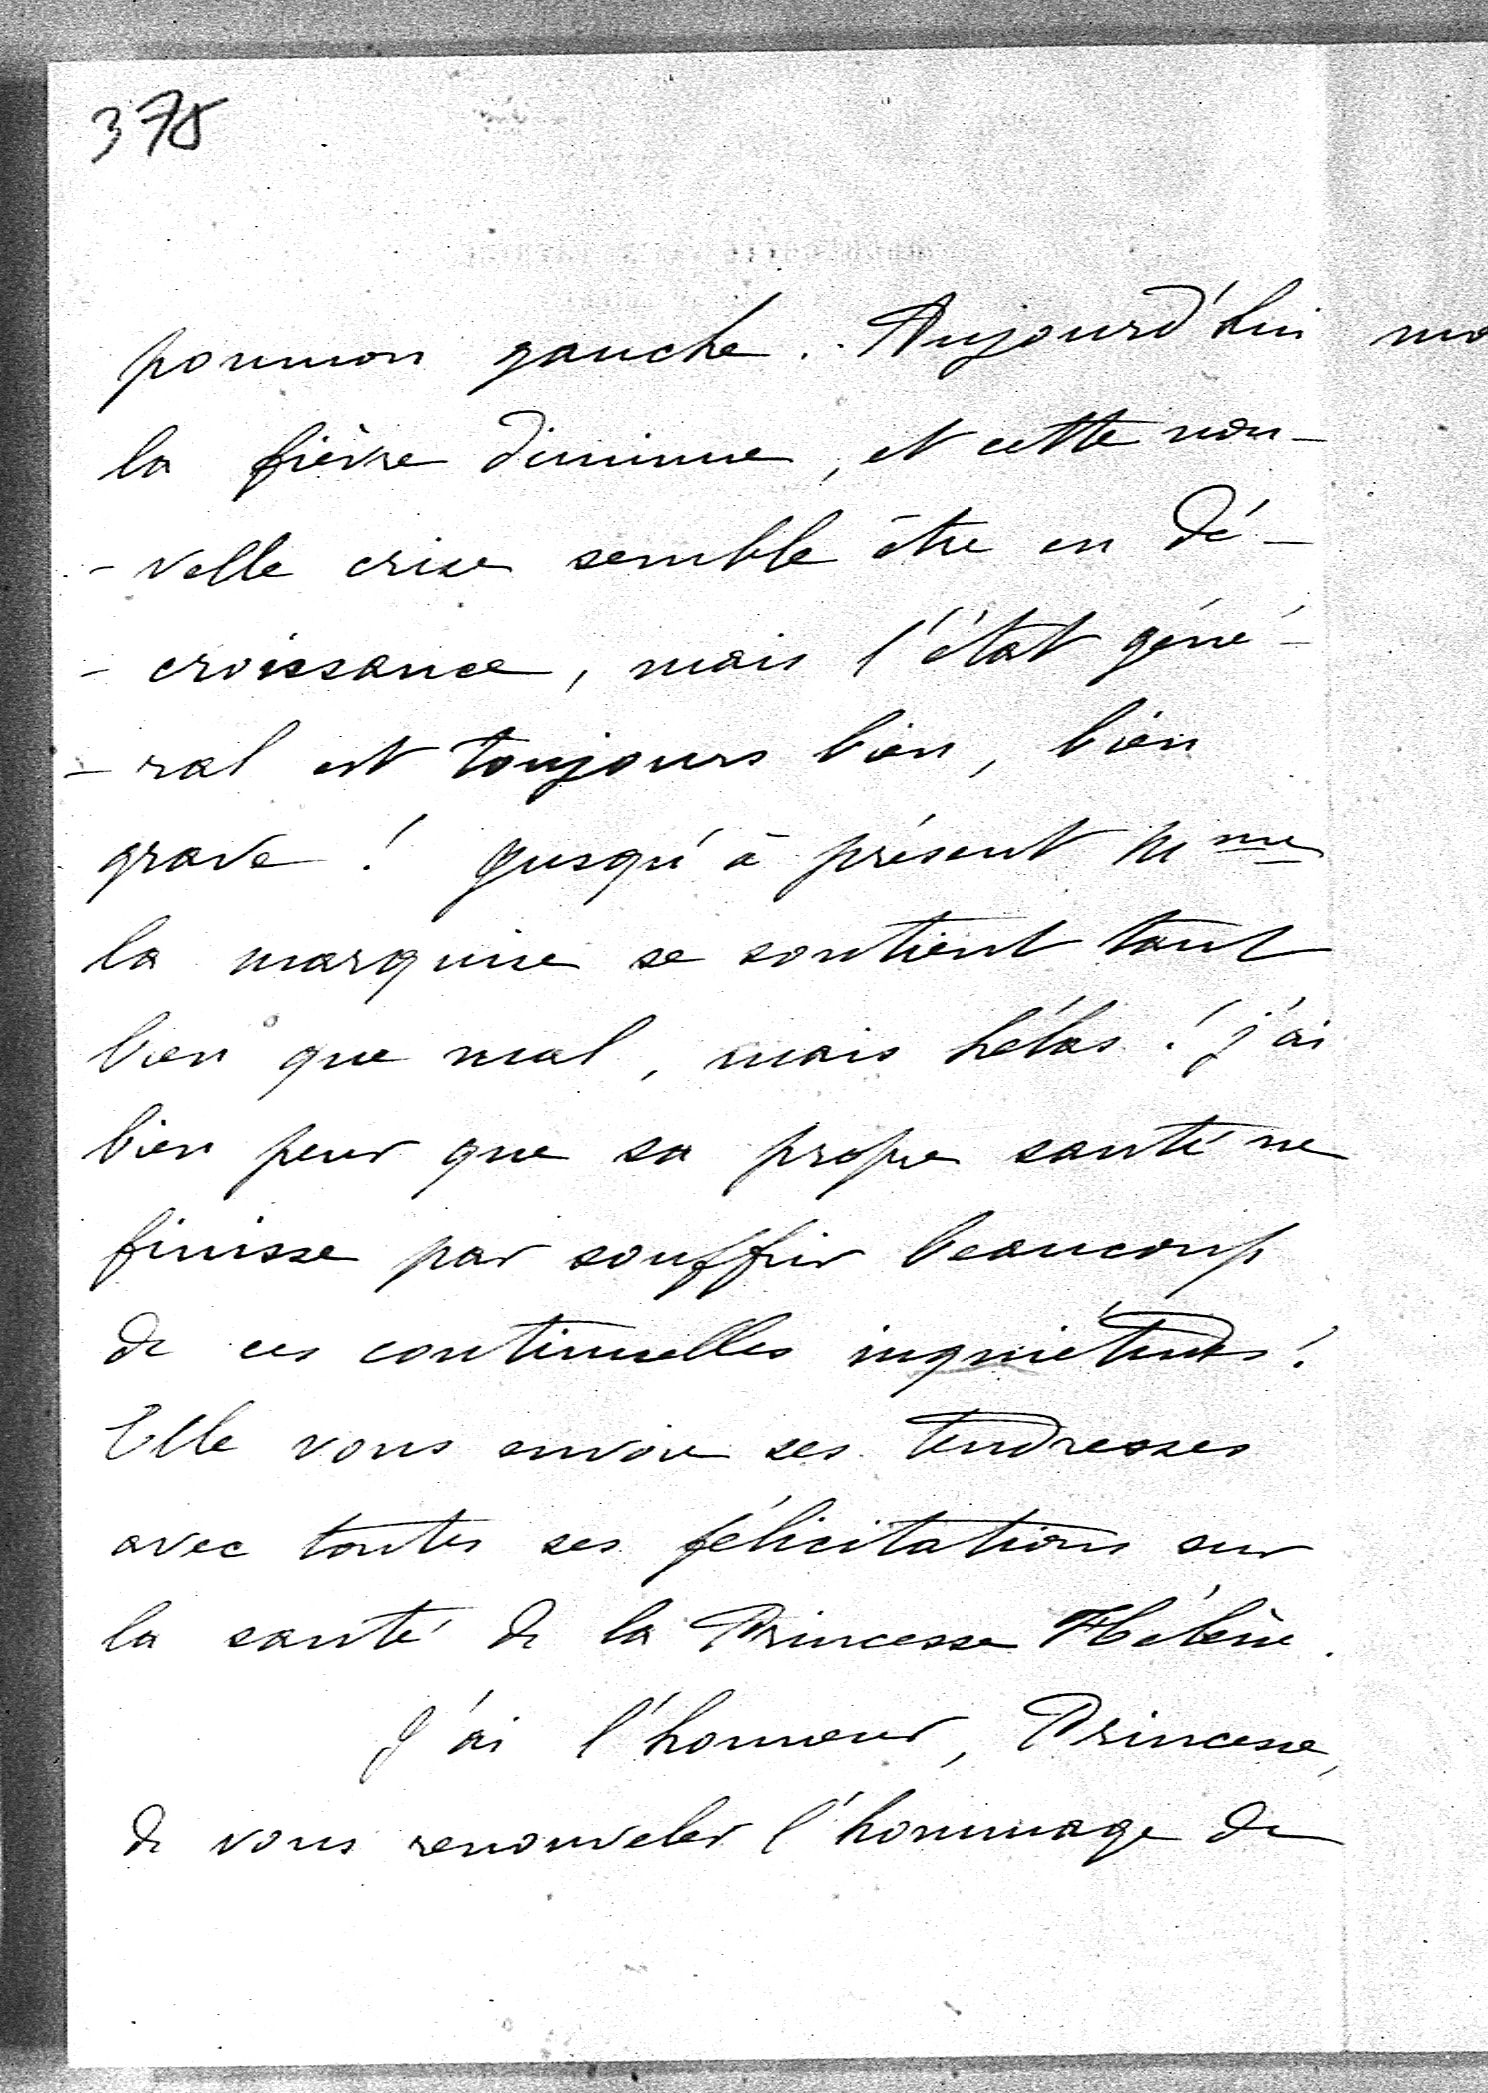 378
poumon gauche. Aujourd'hui mo
la fièvre diminue, et cette nou-
- velle crise semble être en dé-
- croissance, mais l'état géné-
- ral est toujours bien, bien
grave ! Jusqu'à présent Mme
la marquise se soutient tant
bien que mal, mais hélas ! j'ai
bien peur que sa propre santé ne
finisse par souffrir beaucoup
de ces continuelles inquiétudes !
Elle vous envoie ses tendresses
avec toutes ses félicitations sur
la santé de la Princesse Hélène.
J'ai l'honneur, Princesse,
de vous renouveler l'hommage du